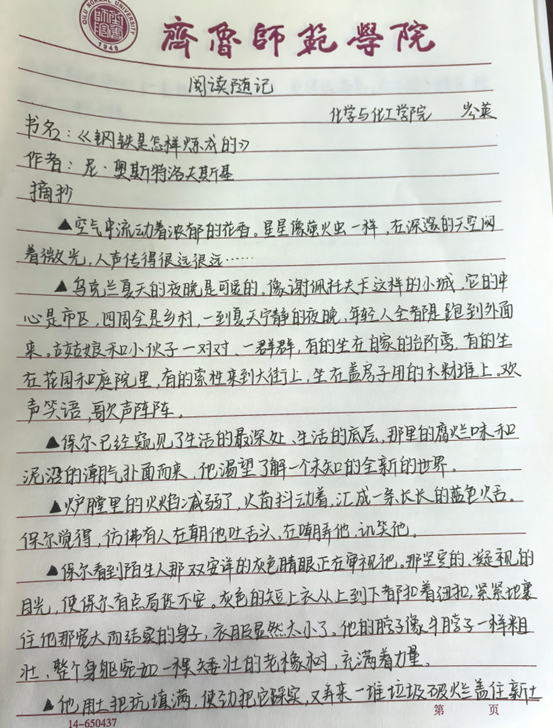 QILU NORMAL UNIVERSITY
1948
齊魯師範學院
阅读随记
化学与化工学院 岑英
书名:《钢铁是怎样炼成的》
作者:尼·奥斯特洛夫斯基
摘抄
▲空气中流动着浓郁的花香。星星像萤火虫一样,在深邃的天空闪
着微光,人声传得很远很远……
▲乌克兰夏天的夜晚是可爱的。像谢佩托夫卡这样的小城,它的中
心是市区,四周全是乡村,一到夏天宁静的夜晚,年轻人全都是跑到外面
来。姑娘和小伙子一对对、一群群,有的坐在自家的台阶旁,有的坐
在花园和庭院里,有的索性来到大街上,坐在盖房子用的木材堆上。欢
声笑语,歌声阵阵。
▲保尔已经窥见了生活的最深处、生活的底层,那里的腐烂味和
泥沼的潮气扑面而来,他渴望了解一个未知的全新的世界。
▲炉膛里的火焰减弱了,火苗抖动着,汇成一条长长的蓝色火舌。
保尔觉得,仿佛有人在朝他吐舌头,在嘲弄他,讥笑他。
▲保尔看到陌生人那双安详的灰色眼睛正在审视他。那坚定的、凝视的
目光,使保尔有点局促不安。灰色的短上衣从上到下都扣着纽扣,紧紧地裹
住他那宽大而结实的身子,衣服显然太小了。他的脖子像牛脖子一样粗
壮,整个身躯宛如一棵矮壮的老橡树,充满着力量。
▲他用土把坑填满,使劲把它踩实,又弄来一堆垃圾破烂盖住新土
14-650437 第 页